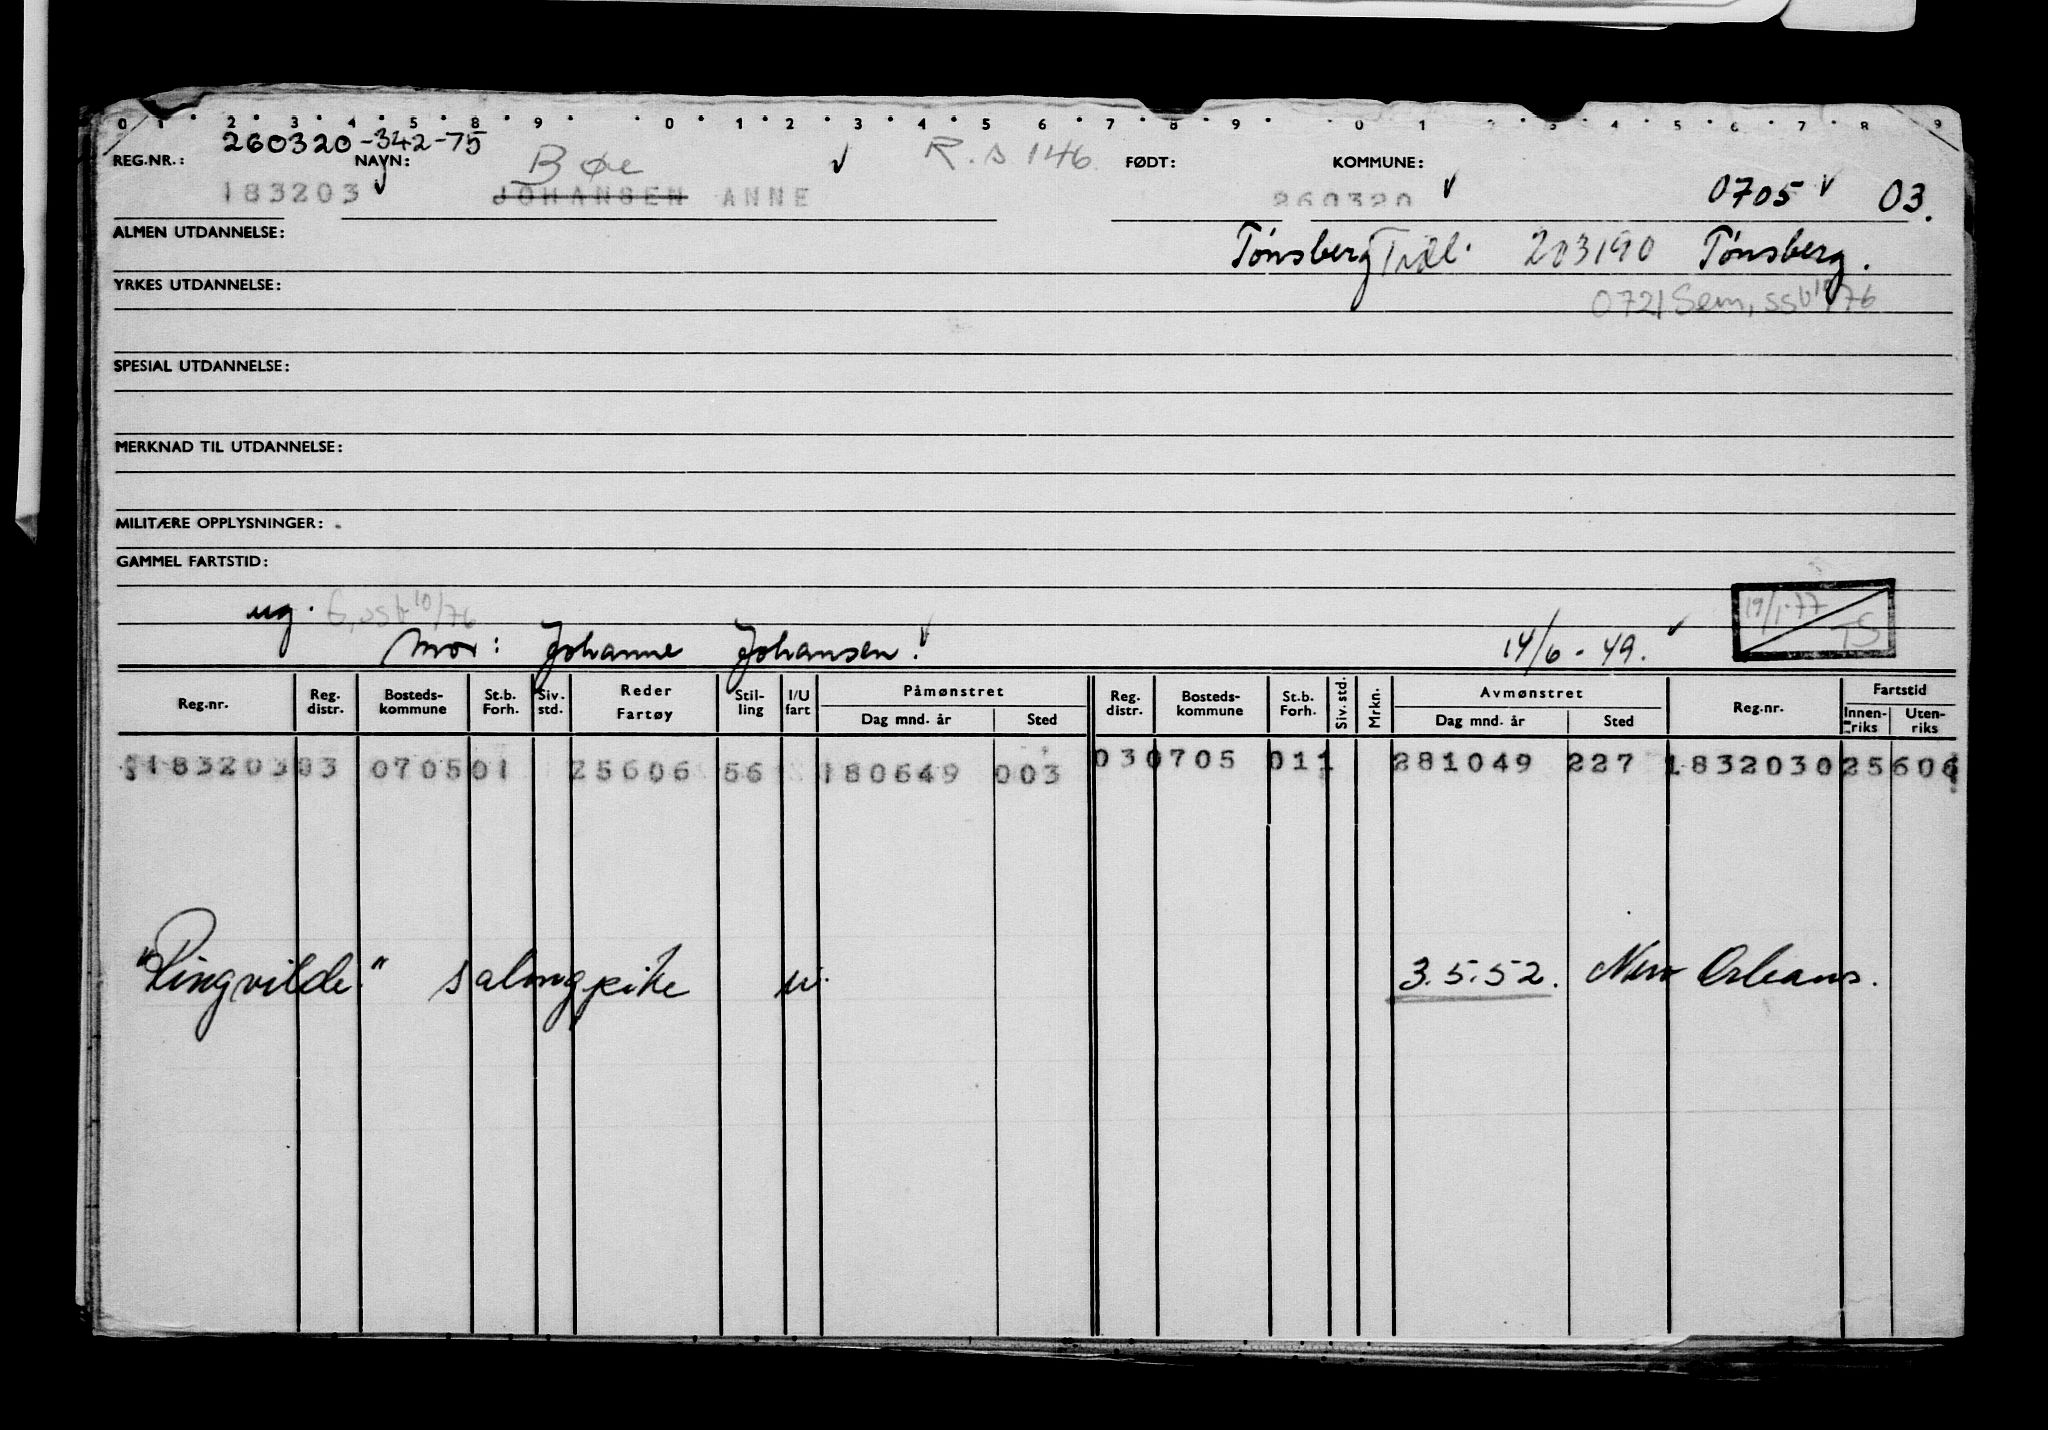 0 1 2 3 4 5 8 9 0 1 2 3 4 5 6 7 8 9 0 1 2 3 4 5 6 7 8 9
260320-342-75
REG.NR.: NAVN: Bøe R.s 146 FØDT: KOMMUNE:
183203 JOHANSEN ANNE 260320 0705 03.
ALMEN UTDANNELSE: Tönsberg 203190 Tönsberg.
YRKES UTDANNELSE: 0721 Sem, ssb 10/76
SPESIAL UTDANNELSE:
MERKNAD TIL UTDANNELSE:
MILITÆRE OPPLYSNINGER:
GAMMEL FARTSTID:
ug. G, ssb 10/76 19/1-77 TS
Mor: Johanne Johansen. 14/6-49.
Reg.nr. Reg. distr. Bosteds-kommune St.b. Forh. Siv. std. Reder Fartøy Stil-ling I/U fart Påmønstret Dag mnd. år Sted Reg. distr. Bosteds-kommune St.b. Forh. Siv. std. Mrkn. Avmønstret Dag mnd. år Sted Reg.nr. Fartstid Innen-riks Uten-riks
18320303 070501 25606 56 180649 003 030705 011 281049 227 183203025606
"Ringvilde" salongpike u. 3.5.52. New Orleans.